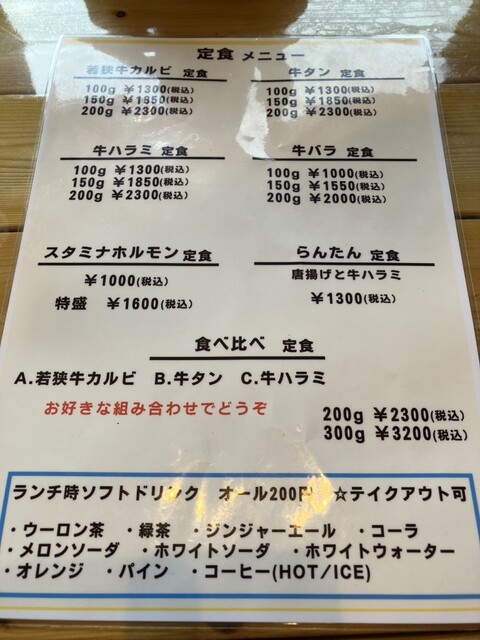 定食 メニュー
若狭牛カルビ 定食
100g ¥1300(税込)
150g ¥1850(税込)
200g ¥2300(税込)
牛タン 定食
100g ¥1300(税込)
150g ¥1850(税込)
200g ¥2300(税込)
牛ハラミ 定食
100g ¥1300(税込)
150g ¥1850(税込)
200g ¥2300(税込)
牛バラ 定食
100g ¥1000(税込)
150g ¥1550(税込)
200g ¥2000(税込)
スタミナホルモン 定食
¥1000(税込)
特盛 ¥1600(税込)
らんたん 定食
唐揚げと牛ハラミ
¥1300(税込)
食べ比べ 定食
A.若狭牛カルビ B.牛タン C.牛ハラミ
お好きな組み合わせでどうぞ
200g ¥2300(税込)
300g ¥3200(税込)
ランチ時ソフトドリンク オール200円 ☆テイクアウト可
・ウーロン茶 ・緑茶 ・ジンジャーエール ・コーラ
・メロンソーダ ・ホワイトソーダ ・ホワイトウォーター
・オレンジ ・パイン ・コーヒー(HOT/ICE)